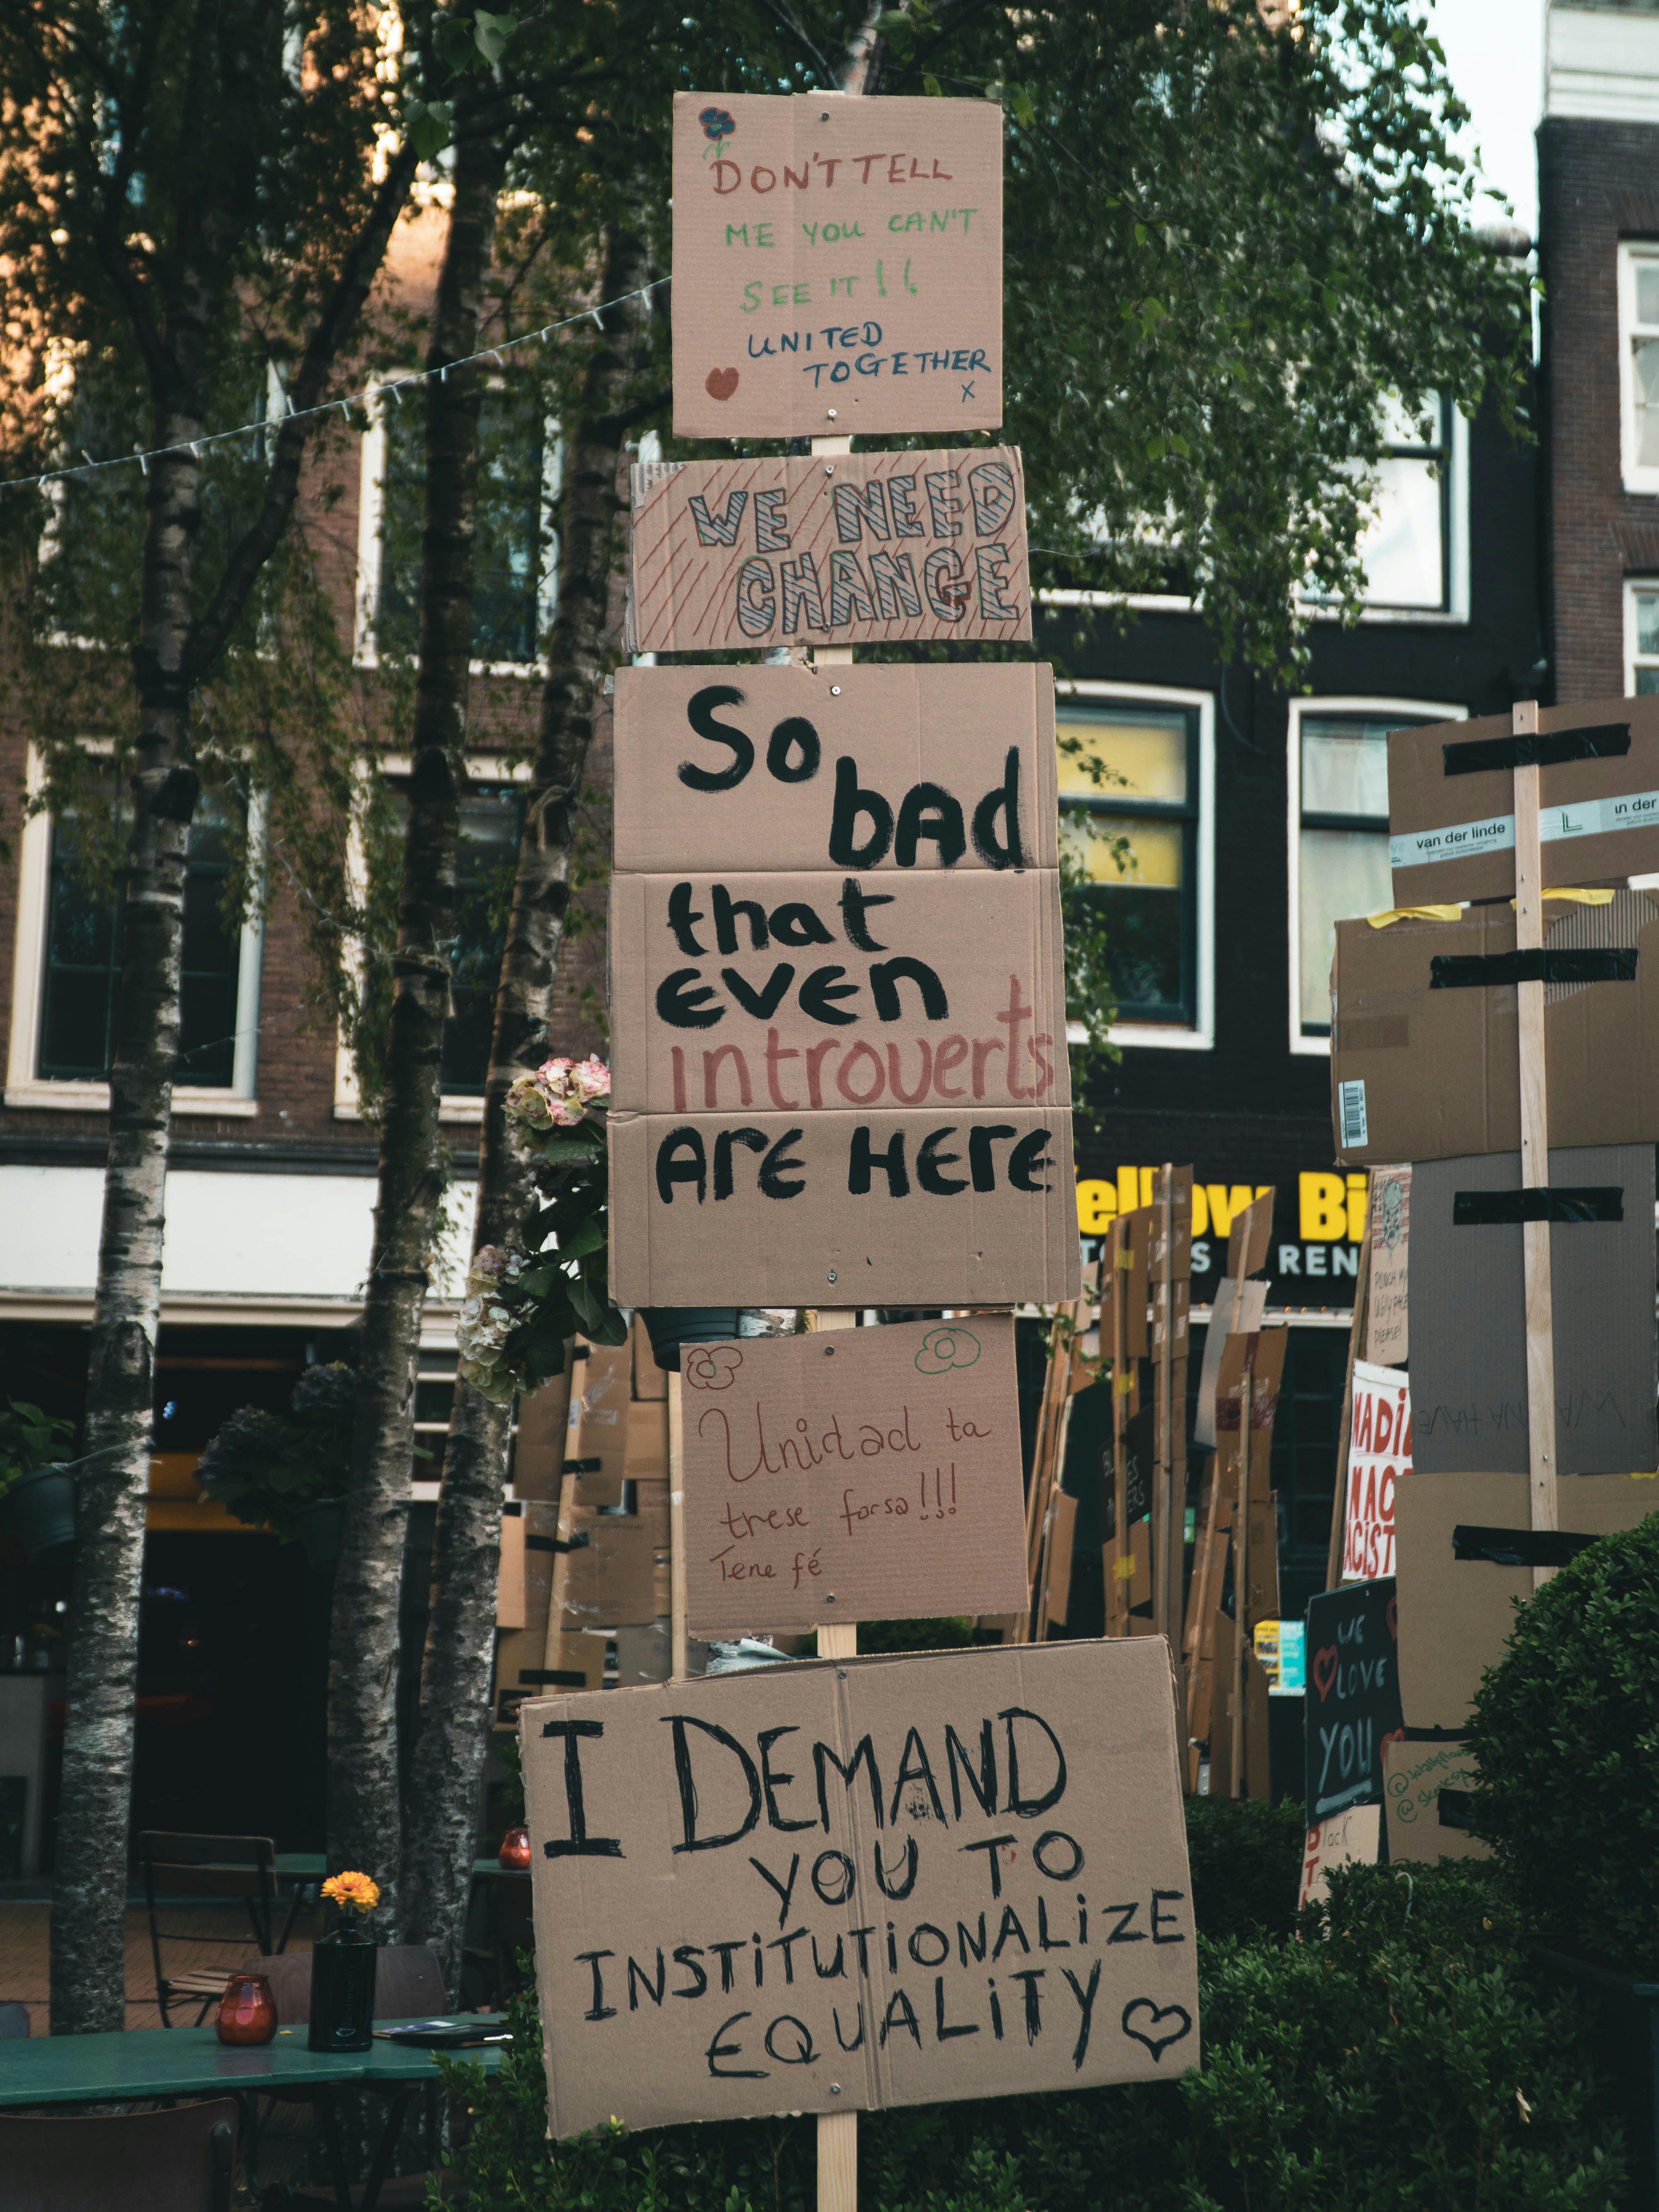 DON'T TELL
ME YOU CAN'T
SEE IT!!
UNITED
TOGETHER
x
WE NEED
CHANGE
So
bAd
that
even
introverts
Are Here
Unidad ta
trese forsa!!!
Tene fé
I DEMAND
YOU TO
INSTiTUTiONALiZE
EQUALiTY
van der linde
an der
ellow Bi
S REN
PUNCH MY
UGLY FACE
PLEASE!
WE
LOVE
YOU